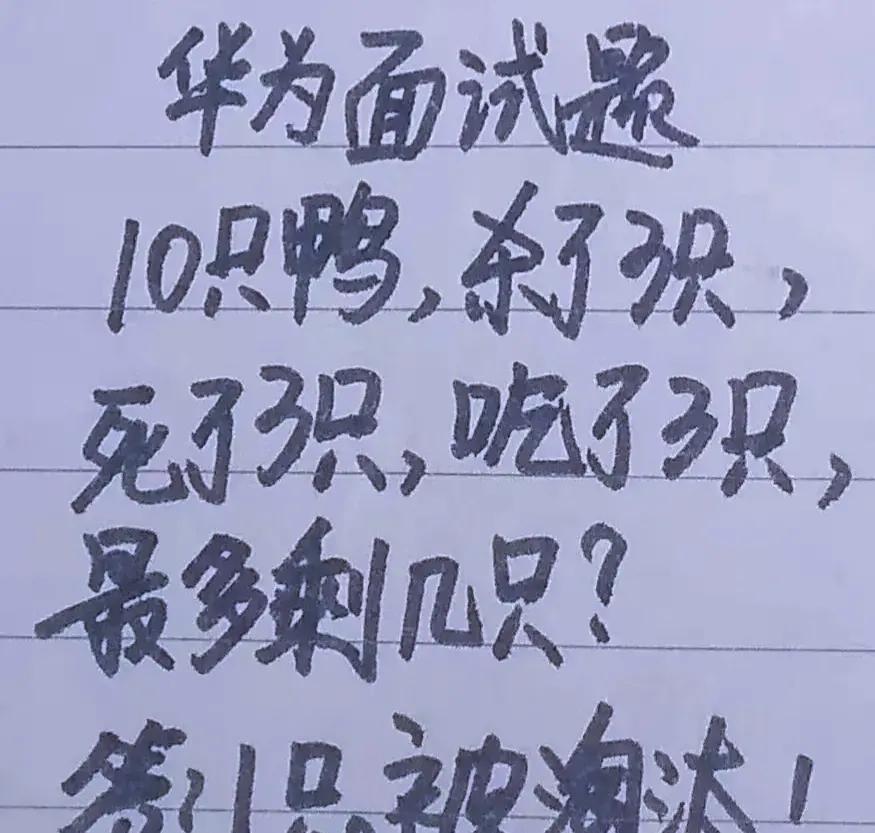 华为面试题
10只鸭,杀了3只,
死了3只,吃了3只,
最多剩几只?
答1只被淘汰!